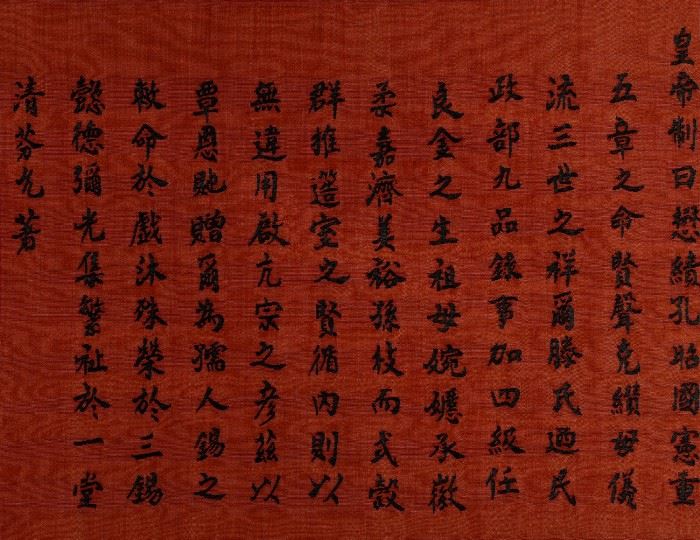 皇帝制曰懋績孔昭國憲重
五章之命賢聲克纘母儀
流三世之祥爾滕氏迺民
政部九品錄事加四級任
良金之生祖母婉嬺承徽
柔嘉濟美裕孫枝而式穀
群推簉室之賢循內則以
無違用啟亢宗之彥茲以
覃恩貤贈爾為孺人錫之
敕命於戲沐殊榮於三錫
懿德彌光集繁祉於一堂
清芬允著